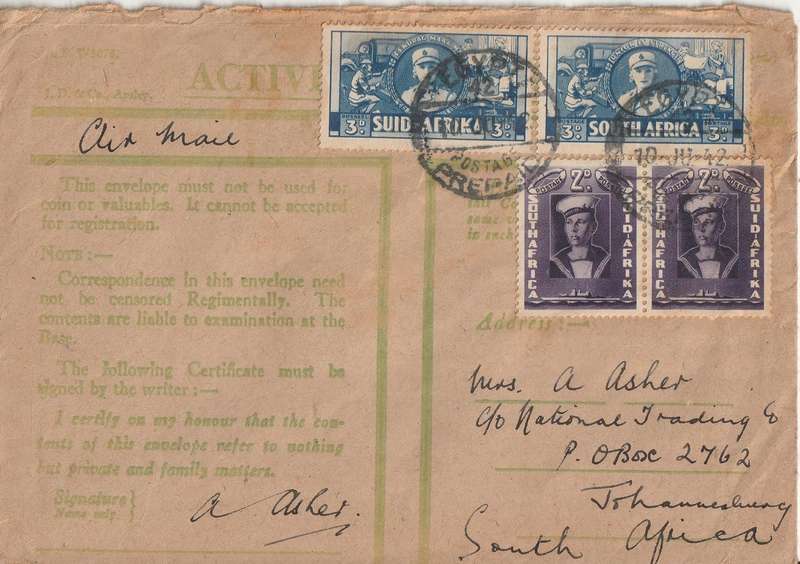 ACTIVE
Air Mail
This envelope must not be used for
coin or valuables. It cannot be accepted
for registration.
NOTE:—
Correspondence in this envelope need
not be censored Regimentally. The
contents are liable to examination at the
Base.
The following Certificate must be
signed by the writer:—
I certify on my honour that the con-
tents of this envelope refer to nothing
but private and family matters.
Signature
Name only
A Asher.
POSTAGE
3D
SUID-AFRIKA
3D
SOUTH AFRICA
3D
EGYPT
42
POSTAGE
PREPAID
EGYPT
10 JU 42
2D
SOUTH AFRICA
SUID-AFRIKA
2D
SOUTH AFRICA
SUID-AFRIKA
Address:—
Mrs. A Asher
c/o National Trading Co
P. O Box 2762
Johannesburg
South Africa